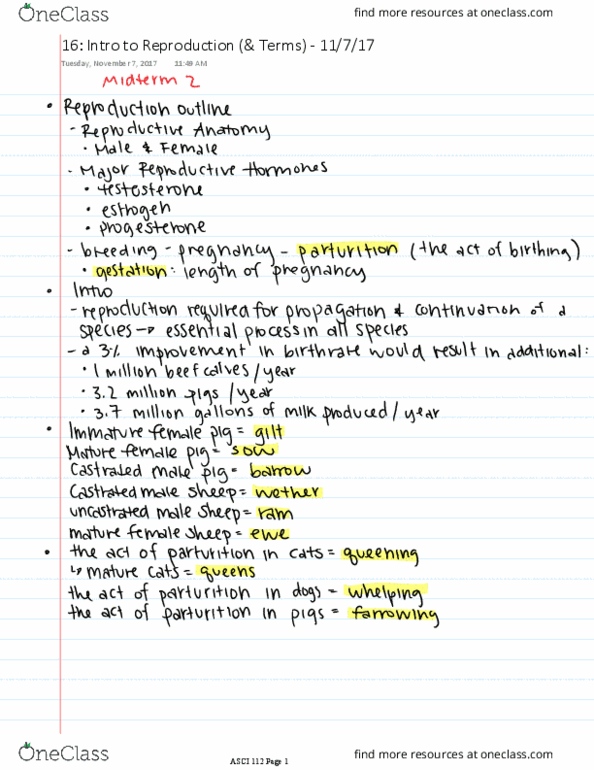 OneClass find more resources at oneclass.com
16: Intro to Reproduction (& Terms) - 11/7/17
Tuesday, November 7, 2017 11:49 AM
Midterm 2
• Reproduction outline
- Reproductive Anatomy
• Male & Female
- Major Reproductive Hormones
• testosterone
• estrogen
• progesterone
- breeding - pregnancy - parturition (the act of birthing)
• gestation: length of pregnancy
• Intro
- reproduction required for propagation & continuation of a
species → essential process in all species
- a 3% improvement in birthrate would result in additional:
• 1 million beef calves/year
• 3.2 million pigs/year
• 3.7 million gallons of milk produced/year
• Immature female pig = gilt
Mature female pig = sow
Castrated male pig = barrow
Castrated male sheep = wether
uncastrated male sheep = ram
mature female sheep = ewe
• the act of parturition in cats = queening
↳ mature cats = queens
the act of parturition in dogs = whelping
the act of parturition in pigs = farrowing
OneClass ASCI 112 Page 1 find more resources at oneclass.com